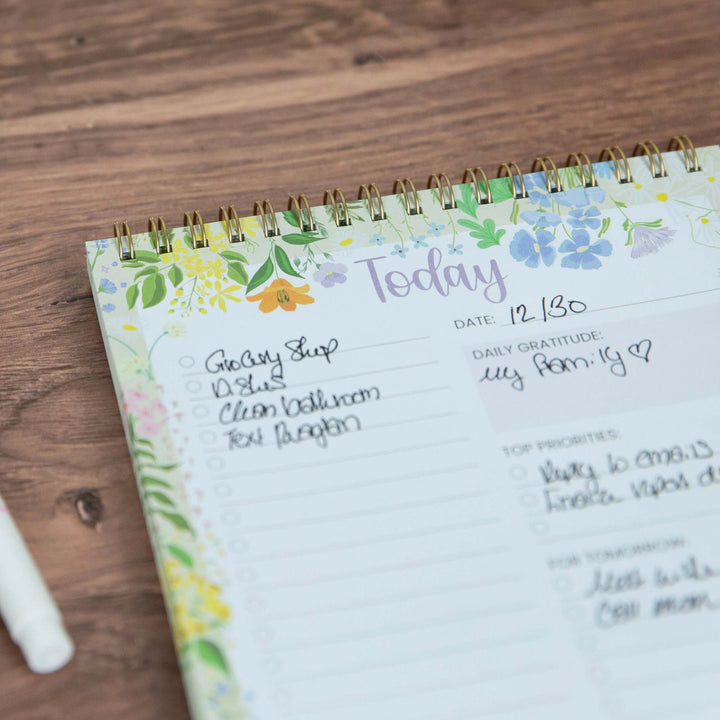 Today
DATE: 12/30
Grocery Shop
Dishes
Clean bathroom
Text
DAILY GRATITUDE:
My Family ♡
TOP PRIORITIES:
Reply to emails
FOR TOMORROW:
Call mom